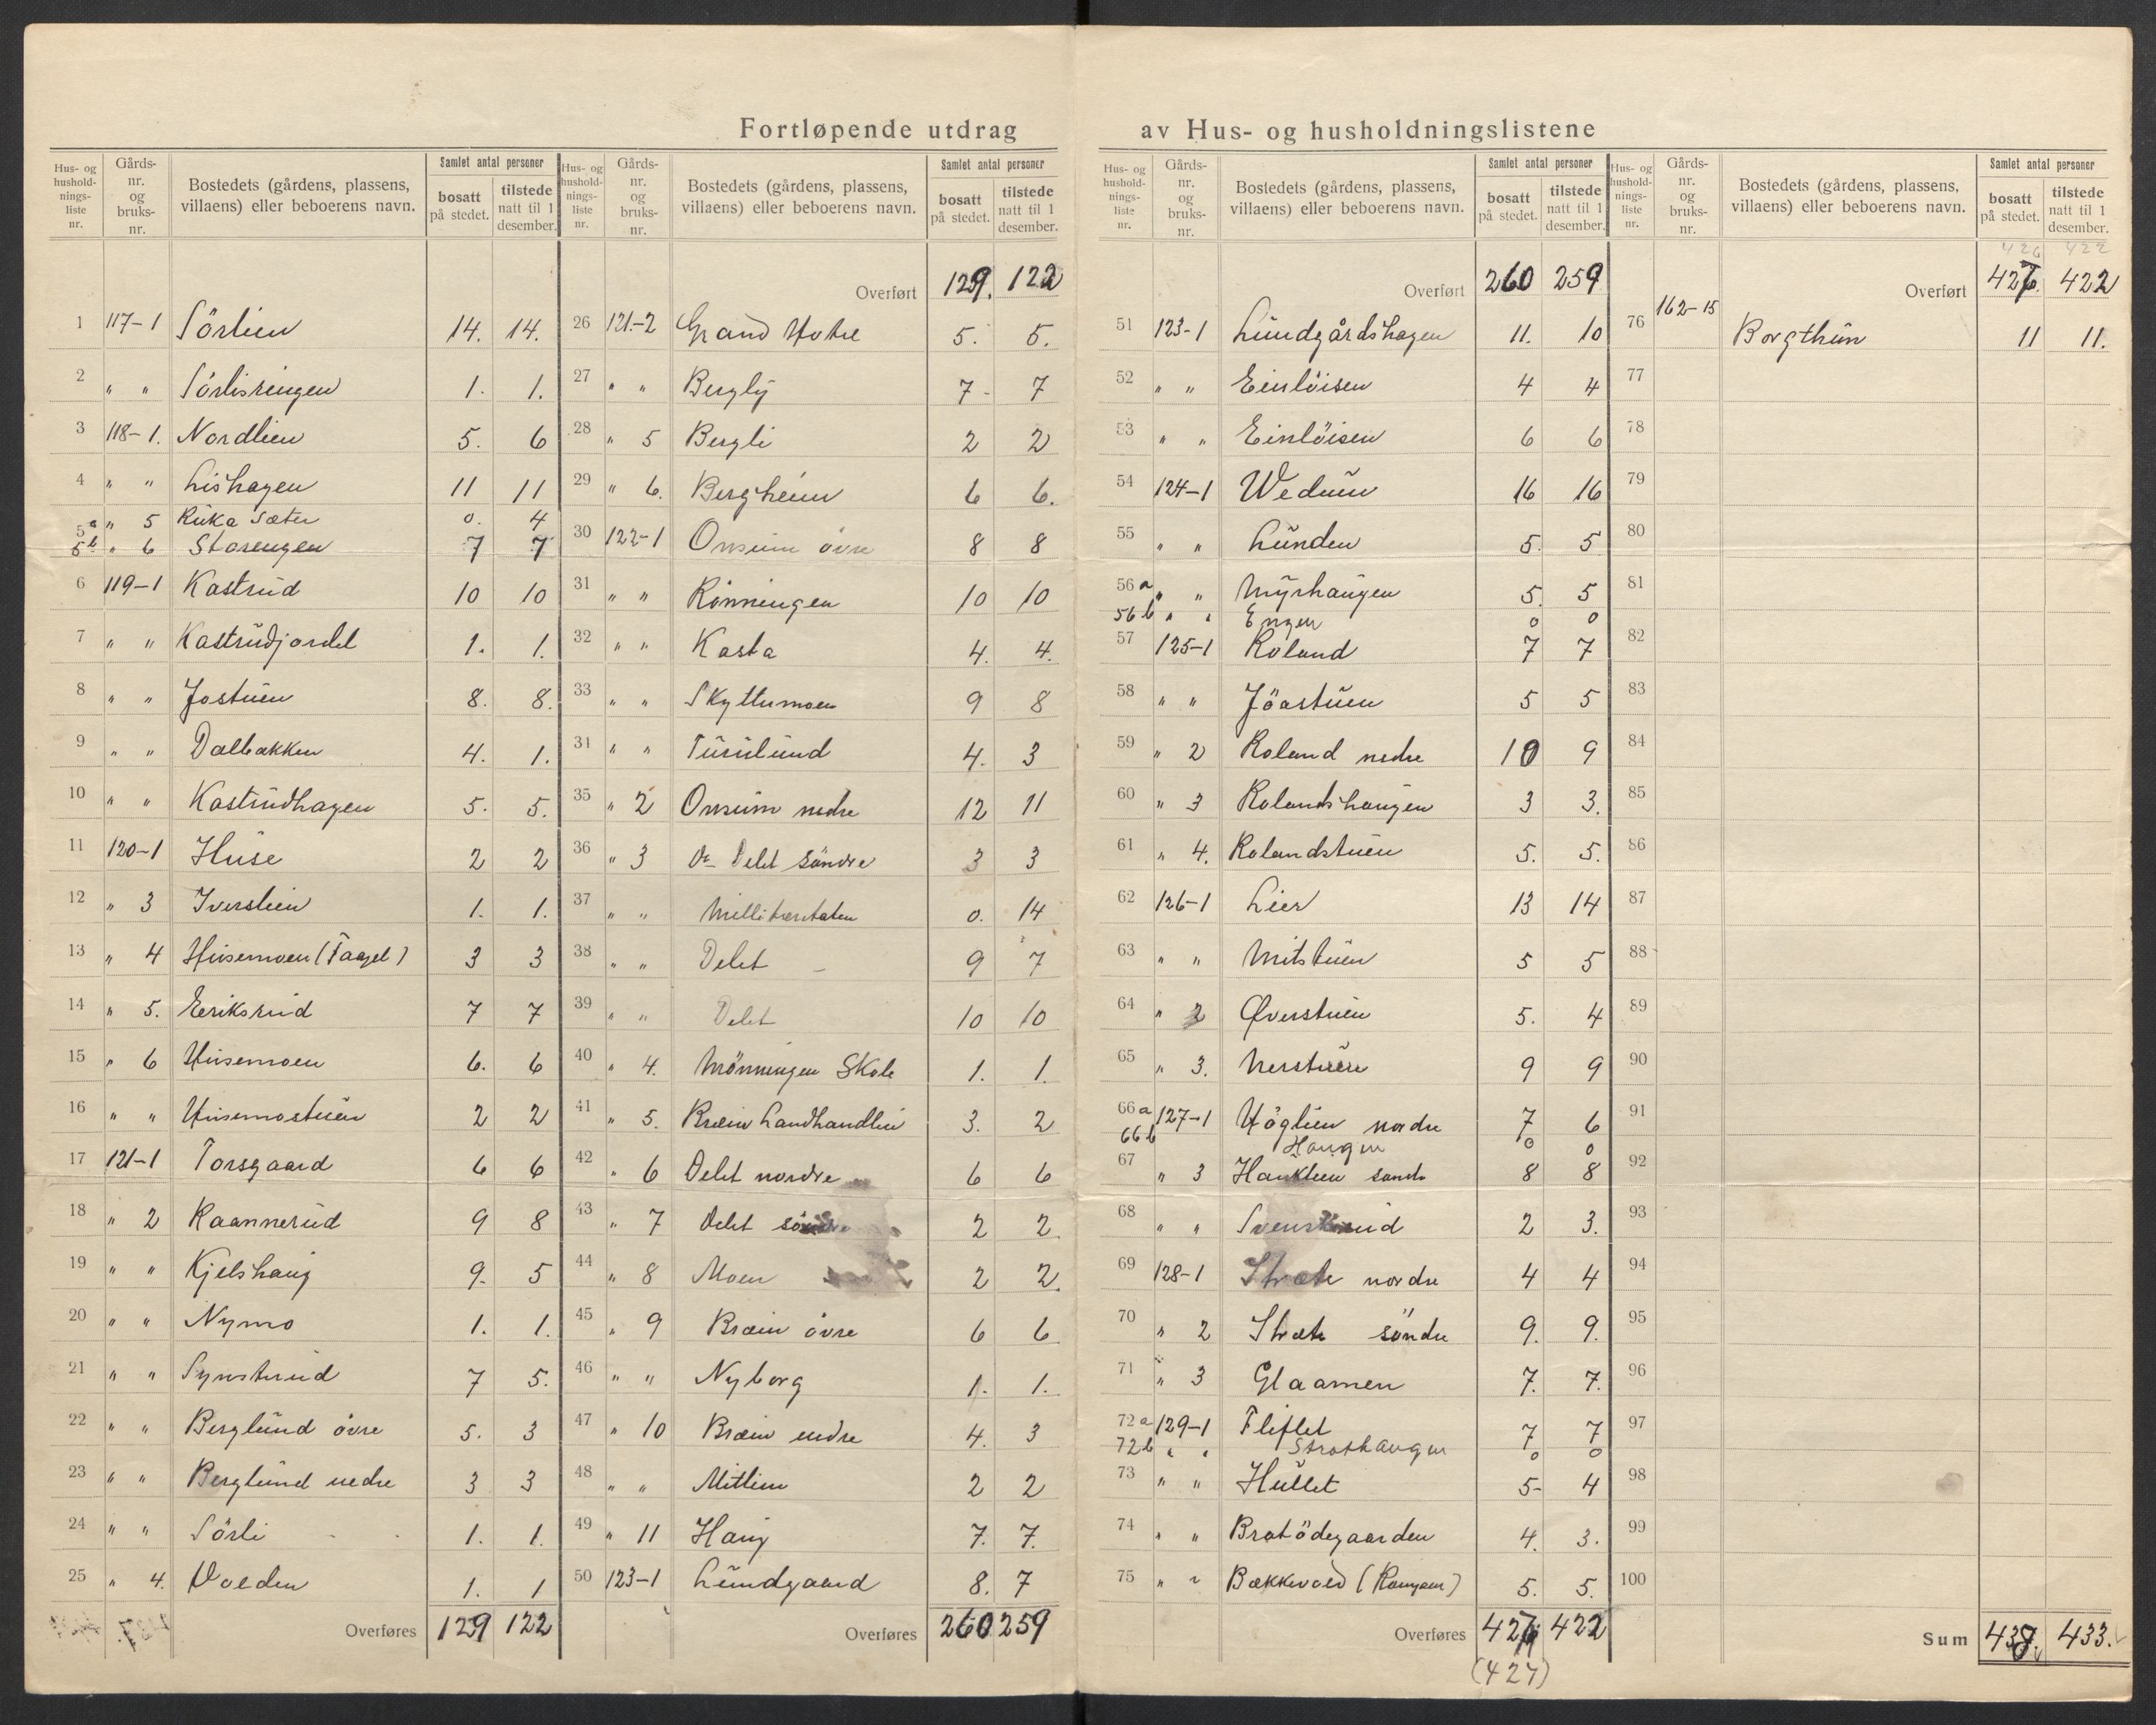 Fortløpende utdrag av Hus- og husholdningslistene
Hus- og husholdnings-liste nr. Gårds-nr. og bruks-nr. Bostedets (gårdens, plassens, villaens) eller beboerens navn. Samlet antal personer bosatt på stedet. tilstede natt til 1 desember.
1 117-1 Sörlien 14. 14.
2 " " Sörlisvingen 1. 1.
3 118-1. Nordlien 5. 6
4 " " Lishagen 11 11
5a " 5 Ruka Sæter 0. 4
5b " 6 Storengen 7 7
6 119-1 Kastrud 10 10
7 " " Kastrudjordet 1. 1.
8 " " Jostuen 8. 8.
9 " " Dalbakken 4. 1.
10 " " Kastrudhagen 5. 5.
11 120-1 Huse 2 2
12 " 3 Iverslien 1. 1.
13 " 4 Husemoen (Taagel) 3 3
14 " 5. Eeriksrud 7 7
15 " 6 Husemoen 6. 6
16 " " Husemostuen 2 2
17 121-1 Torsgaard 6 6
18 " 2 Raannerud 9 8
19 " " Kjelshaug 9. 5
20 " " Nymo 1. 1.
21 " " Synstrud 7 5.
22 " " Berglund övre 5. 3
23 " " Berglund nedre 3 3
24 " " Sörli 1. 1.
25 " 4. Volden 1. 1
Overføres 129 122
Hus- og husholdnings-liste nr. Gårds-nr. og bruks-nr. Bostedets (gårdens, plassens, villaens) eller beboerens navn. Samlet antal personer bosatt på stedet. tilstede natt til 1 desember.
Overført 129. 122
26 121.-2 Grand Hotel 5. 5.
27 " " Bergly 7- 7
28 " 5 Bergli 2 2
29 " 6. Bergheim 6 6.
30 122-1 Onsum övre 8 8
31 " " Rönningen 10 10
32 " " Kasta 4. 4.
33 " " Skyttumoen 9 8
31 " " Turislund 4. 3
35 " 2 Onsum nedre 12 11
36 " 3 Do Delet Söndre 3 3
37 " " Millitæretaten 0. 14
38 " " Delet 9 7
39 " " Delet 10 10
40 " 4. Mönningen Skole 1. 1.
41 " 5. Bræin Landhandleri 3. 2
42 " 6 Delet nordre 6 6
43 " 7 Delet söndre 2 2.
44 " 8 Moen 2 2.
45 " 9 Bræin övre 6 6
46 " " Nyborg 1. 1.
47 " 10 Bræin nedre 4. 3
48 " " Mitlien 2 2
49 " 11 Haug 7. 7.
50 123-1 Lundgaard 8. 7
Overføres 260 259
Hus- og husholdnings-liste nr. Gårds-nr. og bruks-nr. Bostedets (gårdens, plassens, villaens) eller beboerens navn. Samlet antal personer bosatt på stedet. tilstede natt til 1 desember.
Overført 260 259
51 123-1 Lundgårdshagen 11. 10
52 " " Einlöisen 4 4
53 " " Einlöisen 6 6
54 124-1 Wedum 16 16
55 " " Lunden 5. 5
56a " " Myrhaugen 5. 5
56b " " Engen 0 0
57 125-1 Roland 7 7
58 " " Jöastuen 5 5
59 " 2 Roland nedre 10 9
60 " 3 Rolandshaugen 3 3.
61 " 4. Rolandstuen 5. 5.
62 126-1 Lier 13 14
63 " " Mitstuen 5 5
64 " 2 Øverstuen 5. 4
65 " 3. Nerstuen 9 9
66a 127-1 Höglien nordre 7 6
66b Haugen 0 0
67 " 3 Hauklien sondr 8 8
68 " " Svenskerud 2 3.
69 128-1 Stræte nordre 4 4
70 " 2 Stræte söndre 9. 9.
71 " 3 Glaamen 7. 7.
72a 129-1 Fliflet 7 7
72b " " Strathaugen 0 0
73 " " Hullet 5- 4
74 " " Bratödegaarden 4. 3.
75 " " Bækkevold 5. 5.
Overføres 427. 422
(427)
Hus- og husholdnings-liste nr. Gårds-nr. og bruks-nr. Bostedets (gårdens, plassens, villaens) eller beboerens navn. Samlet antal personer bosatt på stedet. tilstede natt til 1 desember.
426 422
Overført 427. 422
76 162-15 Borgthun 11 11.
77
78
79
80
81
82
83
84
85
86
87
88
89
90
91
92
93
94
95
96
97
98
99
100
Sum 438. 433.